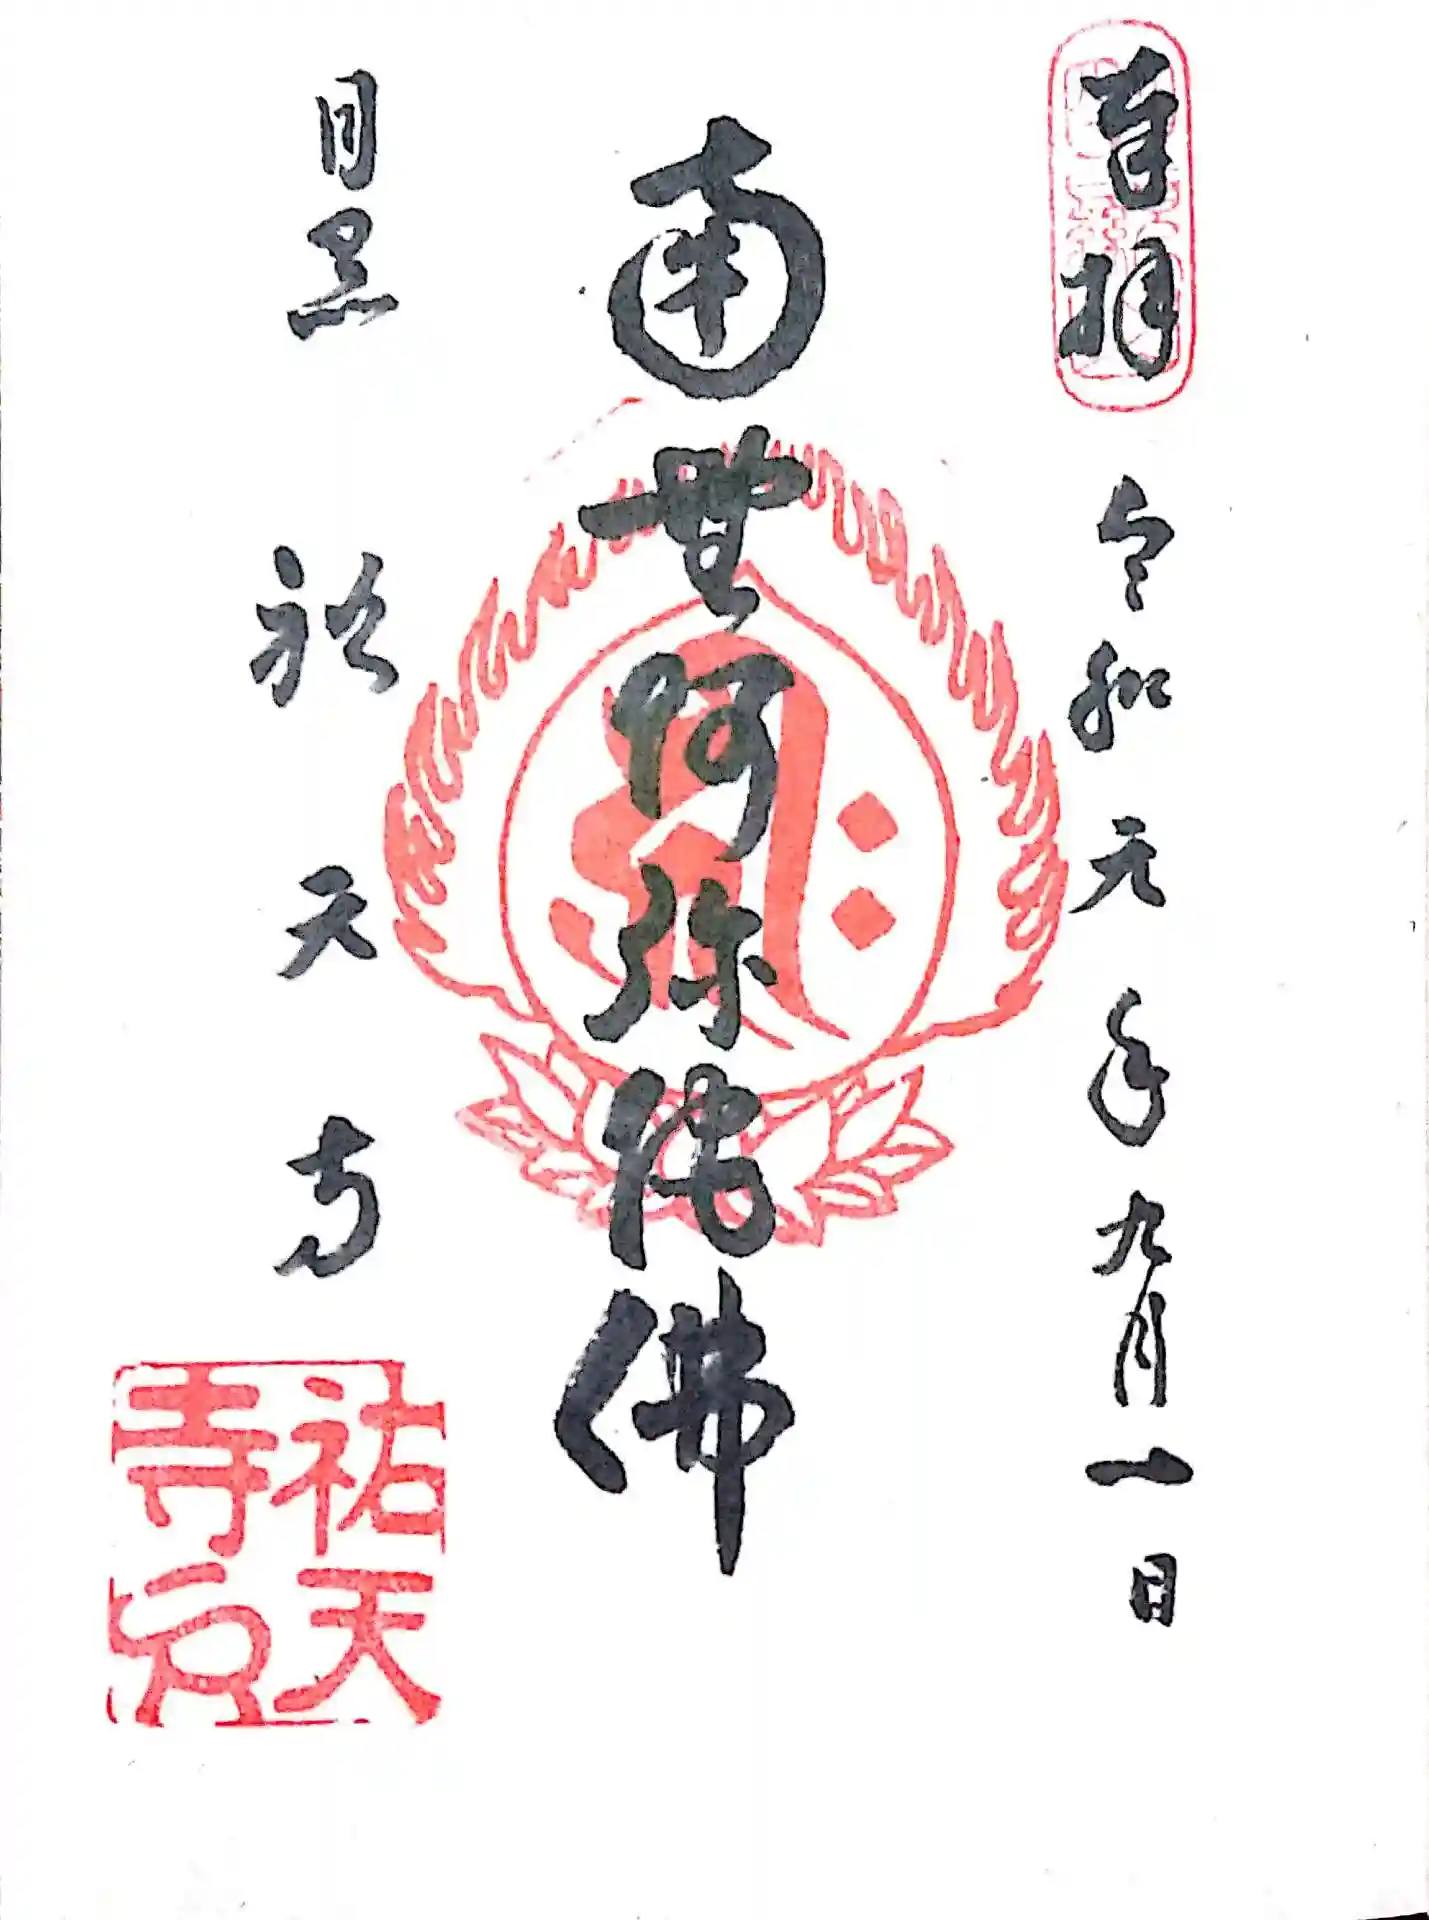 奉拝 令和元年九月一日
南無阿弥陀佛
目黒 祐天寺
祐天
寺印